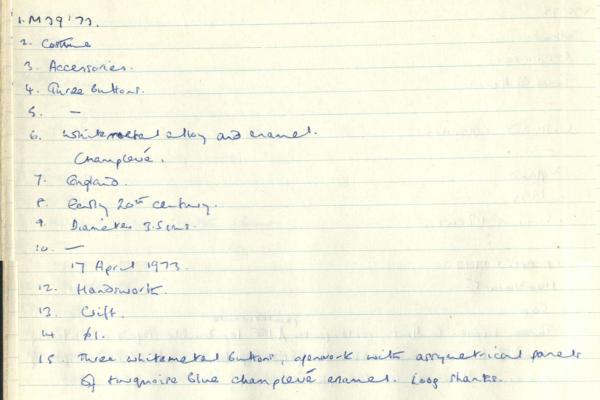 1. M79'73.
2. Costume
3. Accessories.
4. Three buttons.
5. —
6. White metal alloy and enamel.
Champlevé.
7. England.
8. Early 20th century.
9. Diameter 3.5cms.
10. —
17 April 1973.
12. Handsworth.
13. Gift.
14
15. Three whitemetal buttons, openwork with assymetrical panels
of turquoise blue champlevé enamel. Loop shanks.